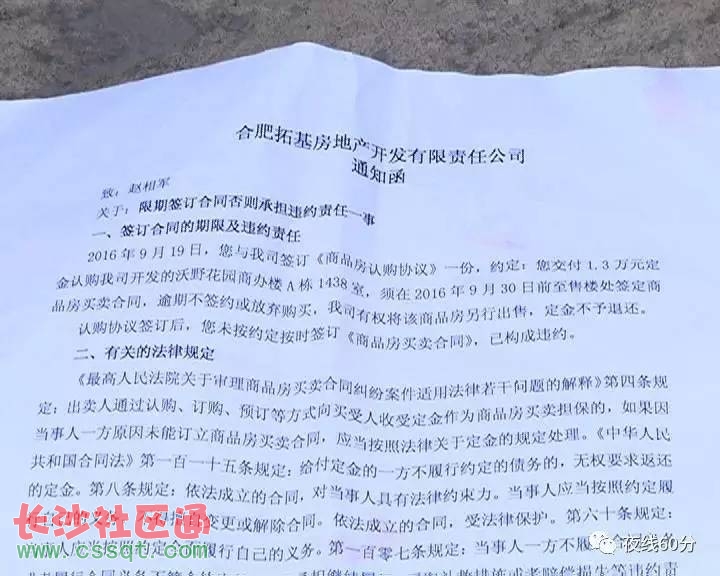 合肥拓基房地产开发有限责任公司
通知函
致：赵相军
关于：限期签订合同否则承担违约责任一事
一、签订合同的期限及违约责任
2016年9月19日，您与我司签订《商品房认购协议》一份，约定：您交付1.3万元定
金认购我司开发的沃野花园商办楼A栋1438室，须在2016年9月30日前至售楼处签定商
品房买卖合同，逾期不签约或放弃购买，我司有权将该商品房另行出售，定金不予退还。
认购协议签订后，您未按约定按时签订《商品房买卖合同》，已构成违约。
二、有关的法律规定
《最高人民法院关于审理商品房买卖合同纠纷案件适用法律若干问题的解释》第四条规
定：出卖人通过认购、订购、预订等方式向买受人收受定金作为商品房买卖担保的，如果因
当事人一方原因未能订立商品房买卖合同，应当按照法律关于定金的规定处理。《中华人民
共和国合同法》第一百一十五条规定：给付定金的一方不履行约定的债务的，无权要求返还
的定金。第八条规定：依法成立的合同，对当事人具有法律约束力。当事人应当按照约定履
变更或解除合同。依法成立的合同，受法律保护。第六十条规定：
履行自己的义务。第一百零七条规定：当事人一方不履行
长沙社区通
www.cssqt.com
夜线60分